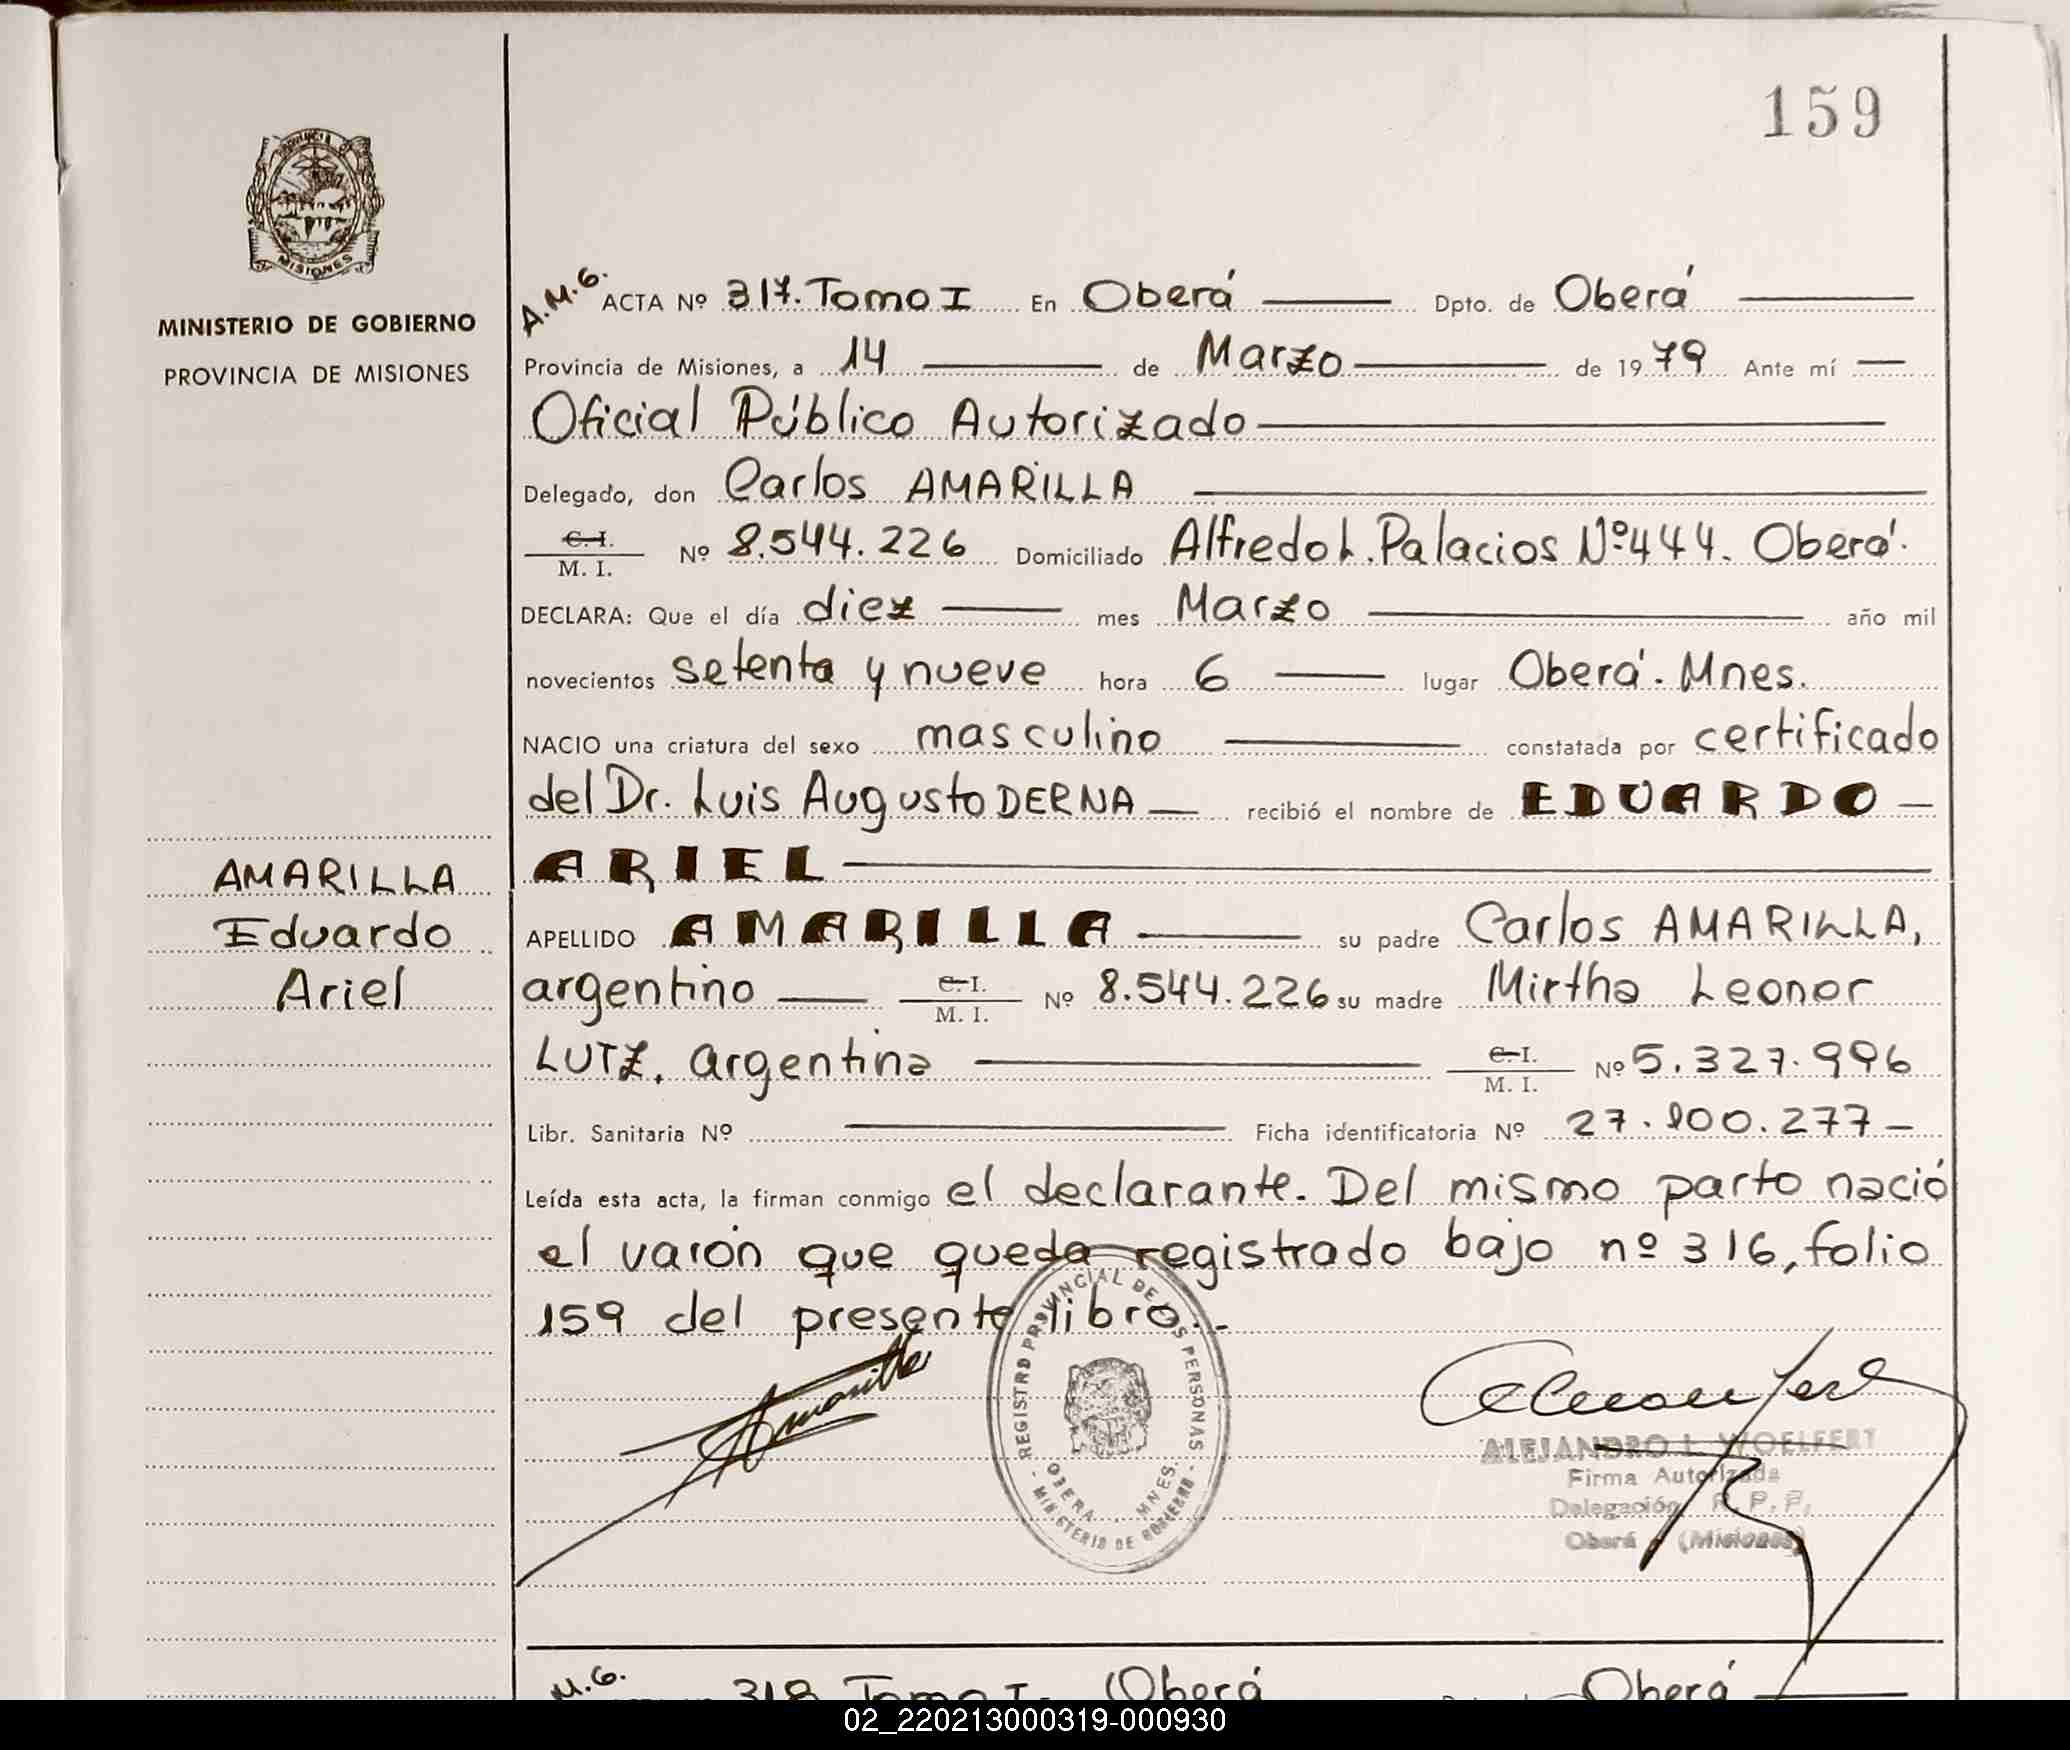 159
PROVINCIA DE
MISIONES
MINISTERIO DE GOBIERNO
PROVINCIA DE MISIONES
A.M.G. ACTA Nº 317. Tomo I En Oberá Dpto. de Oberá
Provincia de Misiones, a 14 de Marzo de 1979 Ante mí
Oficial Público Autorizado
Delegado, don Carlos AMARILLA
C.I.
M. I. Nº 8.544.226 Domiciliado Alfredo L. Palacios Nº 444. Oberá.
DECLARA: Que el día diez mes Marzo año mil
novecientos setenta y nueve hora 6 lugar Oberá. Mnes.
NACIO una criatura del sexo masculino constatada por certificado
del Dr. Luis Augusto DERNA recibió el nombre de EDUARDO
ARIEL
AMARILLA
Eduardo
Ariel
APELLIDO AMARILLA su padre Carlos AMARILLA,
argentino C.I. M. I. Nº 8.544.226 su madre Mirtha Leonor
LUTZ, argentina C.I. M. I. Nº 5.327.996
Libr. Sanitaria Nº Ficha identificatoria Nº 27.100.277
Leída esta acta, la firman conmigo el declarante. Del mismo parto nació
el varón que queda registrado bajo nº 316, folio
159 del presente libro.-
Amarilla
REGISTRO PROVINCIAL DE LAS PERSONAS
OBERA - MNES.
MINISTERIO DE GOBIERNO
ALEJANDRO L. WOELFERT
Firma Autorizada
Delegación R. P. P.
Oberá (Misiones)
M.G. 318 Tomo I. Oberá Oberá
02_220213000319-000930